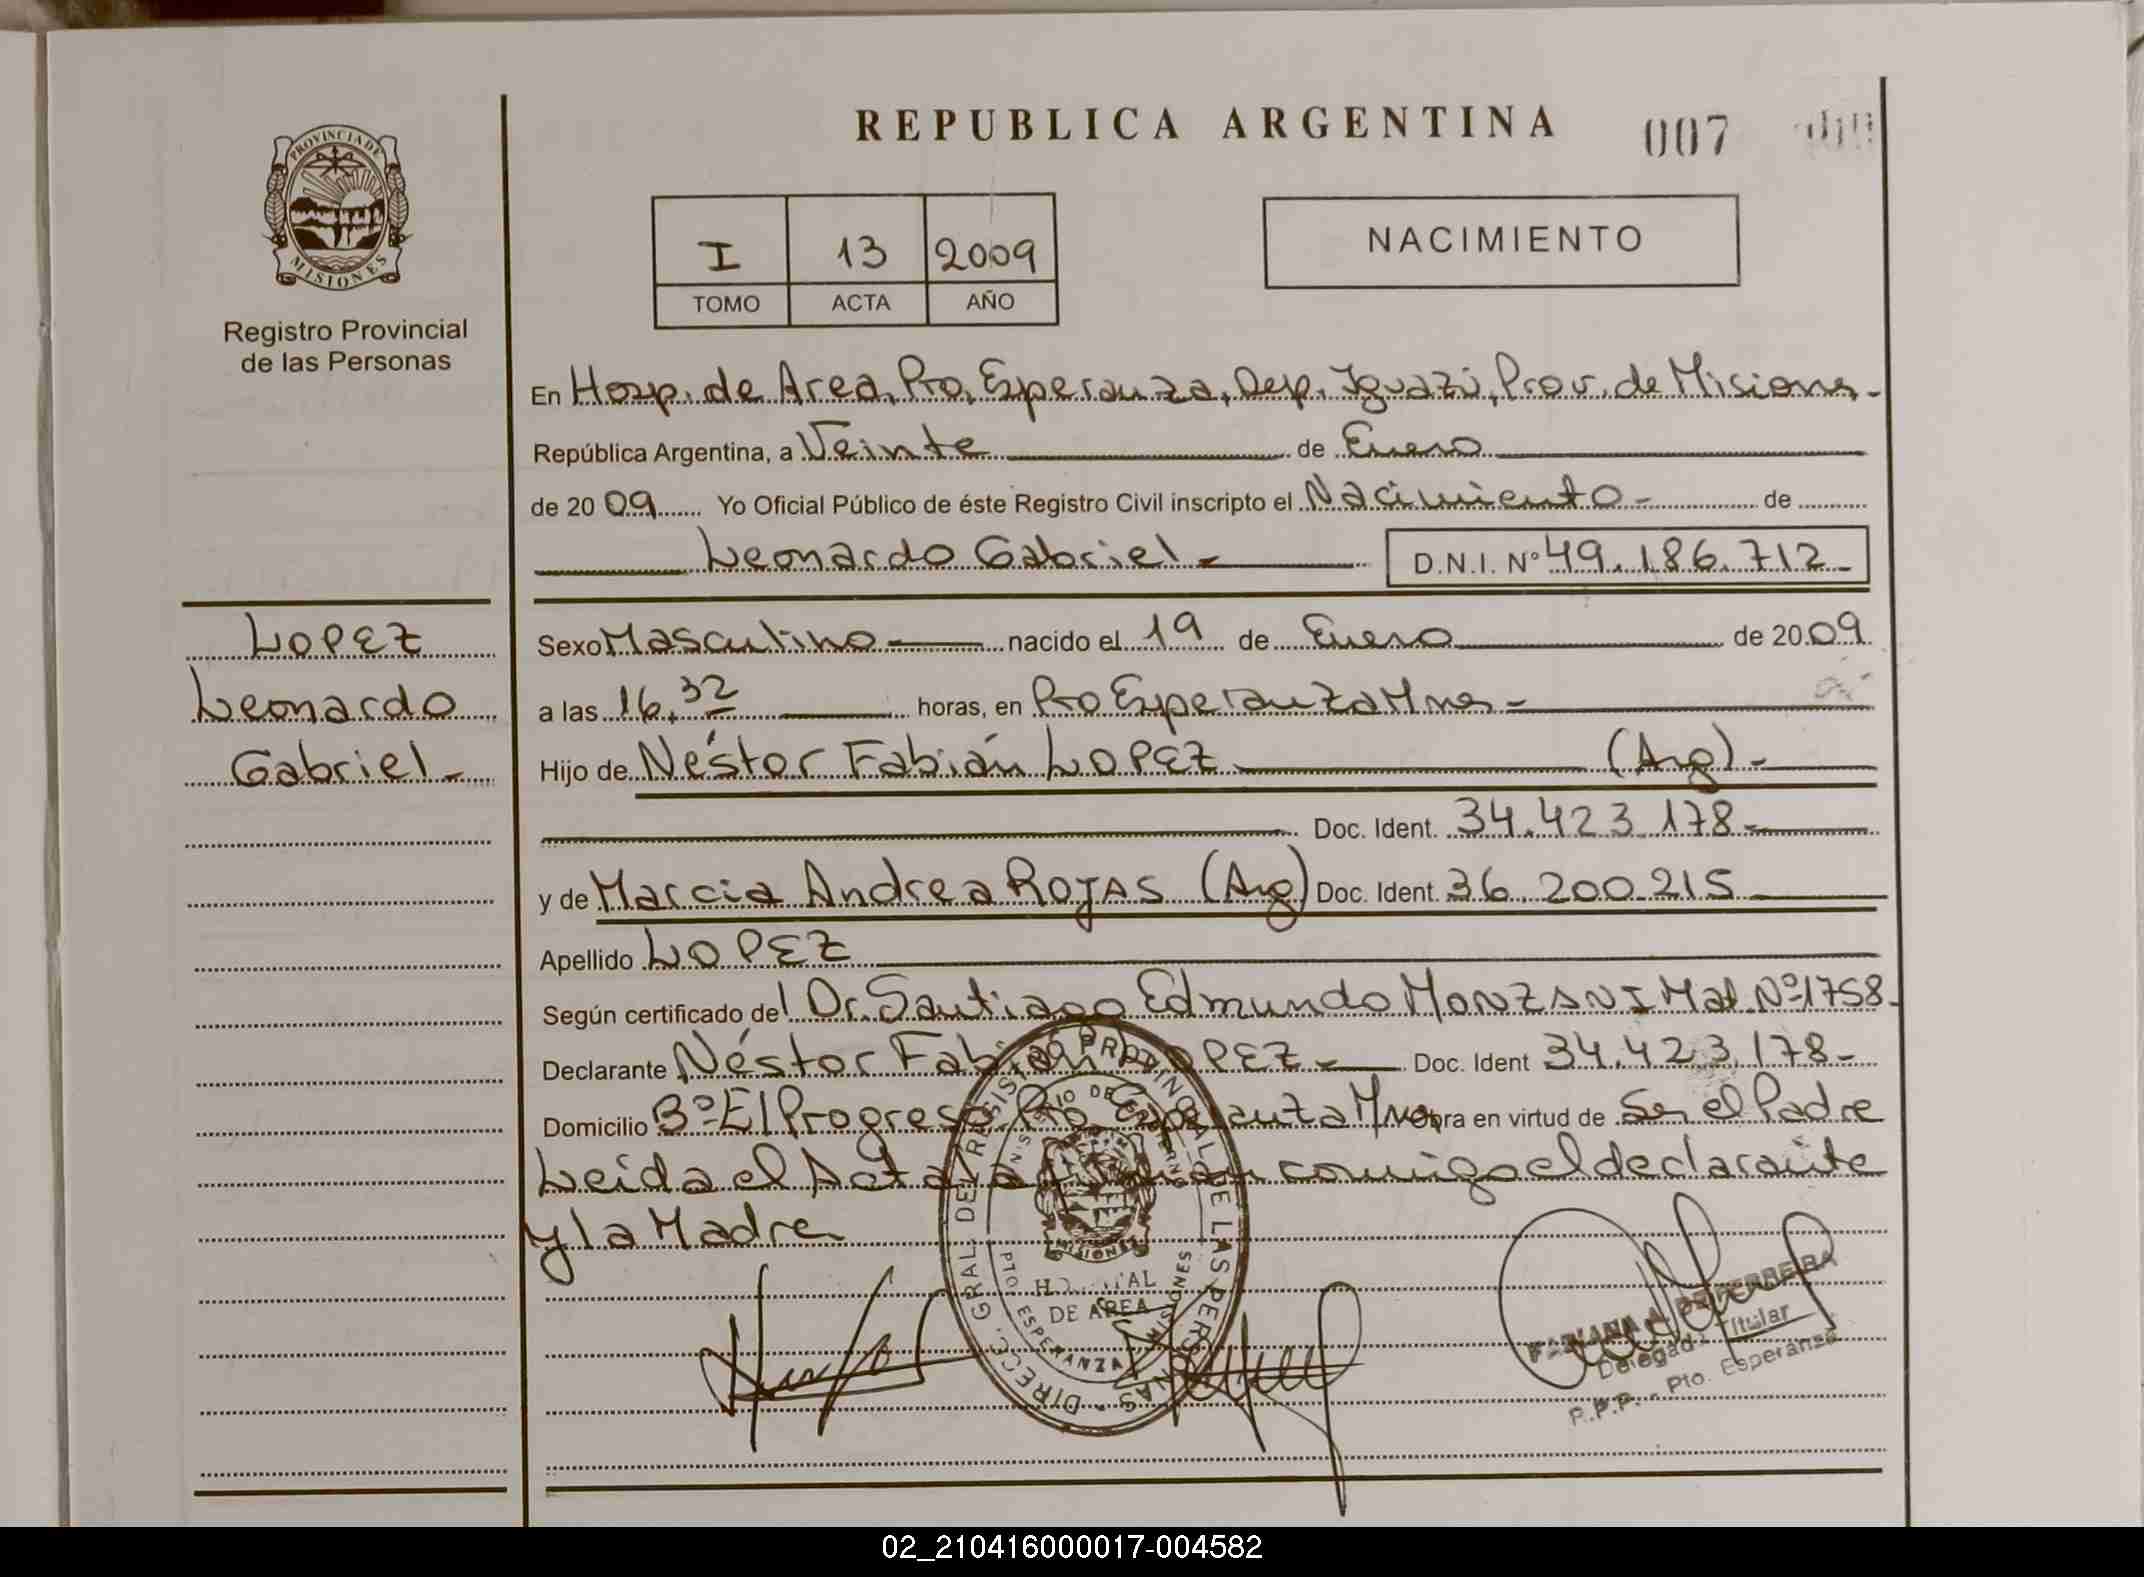 REPUBLICA ARGENTINA
007
PROVINCIA DE
MISIONES
Registro Provincial
de las Personas
I 13 2009
TOMO ACTA AÑO
NACIMIENTO
En Hosp. de Area, Pto, Esperanza, Dep. Iguazú, Prov. de Misiones.-
República Argentina, a Veinte de Enero
de 2009 Yo Oficial Público de éste Registro Civil inscripto el Nacimiento - de
Leonardo Gabriel - D.N.I. Nº 49.186.712-
LOPEZ
Leonardo
Gabriel -
Sexo Masculino - nacido el 19 de Enero de 2009
a las 16,32 horas, en Pto Esperanza Mnes -
Hijo de Néstor Fabián LOPEZ (Arg) -
Doc. Ident. 34.423.178-
y de Marcia Andrea ROJAS (Arg) Doc. Ident. 36.200.215
Apellido LOPEZ
Según certificado del Dr. Santiago Edmundo MONZANI Mat. Nº 1758-
Declarante Néstor Fabián LOPEZ - Doc. Ident 34.423.178-
Domicilio Bº El Progreso Pto Esperanza Mnes Obra en virtud de Ser el Padre
Leida el Acta la firman conmigo el declarante
y la Madre
DIRECC. GRAL. DEL REGISTRO PROVINCIAL DE LAS PERSONAS
MINISTERIO DE GOBIERNO
MISIONES
HOSPITAL
DE AREA
PTO ESPERANZA MISIONES
FABIANA
Delegada Titular
R.P.P. - Pto. Esperanza
02_210416000017-004582